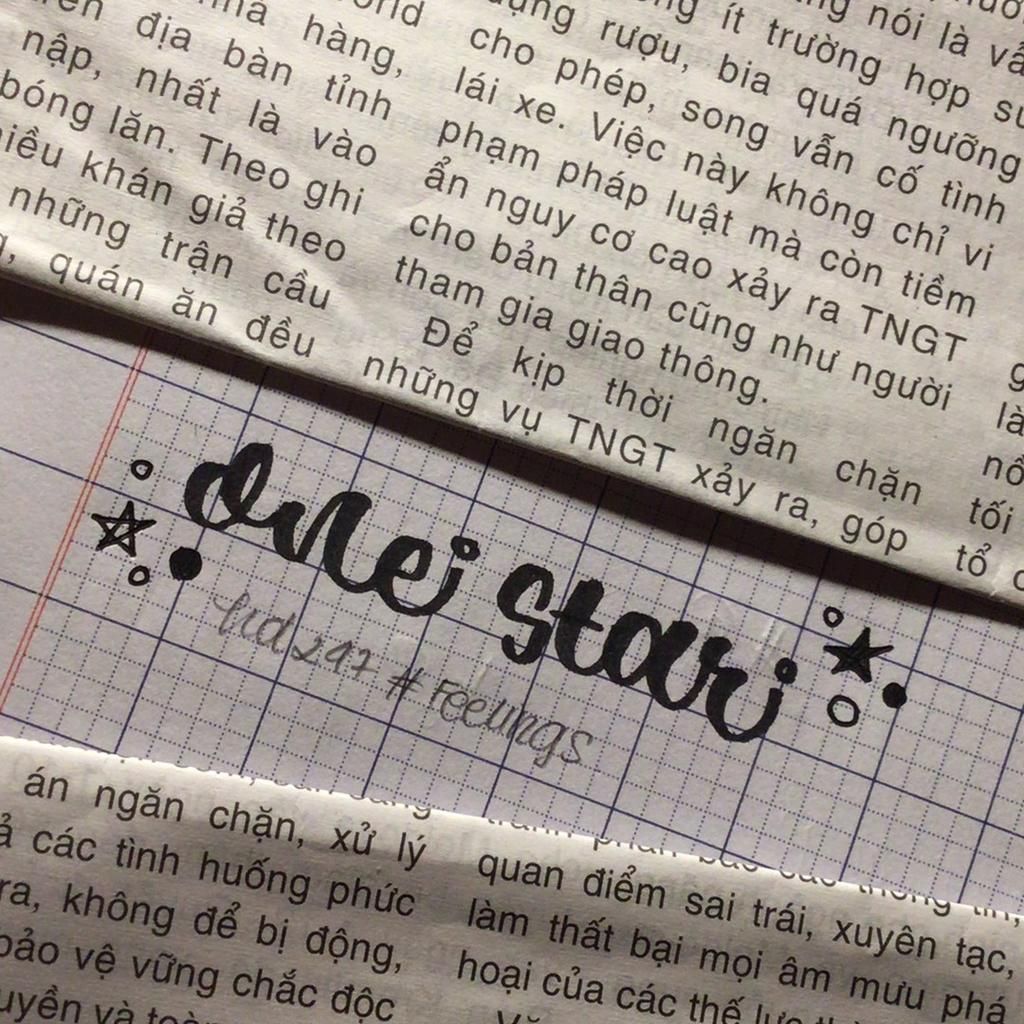 trên địa bàn tỉnh
nập, nhất là vào
bóng lăn. Theo ghi
khán giả theo
những trận cầu
quán ăn đều
hàng,
cho phép, song vẫn cố tình
lái xe. Việc này không chỉ vi
phạm pháp luật mà còn tiềm
ẩn nguy cơ cao xảy ra TNGT
cho bản thân cũng như người
tham gia giao thông.
Để kịp thời ngăn chặn
những vụ TNGT xảy ra, góp
rượu, bia quá ngưỡng
ít trường hợp
nói là
là
tối
tổ
onei stari
#Feelings
án ngăn chặn, xử lý
các tình huống phức
ra, không để bị động,
bảo vệ vững chắc độc
và
quan điểm sai trái, xuyên tạc,
làm thất bại mọi âm mưu phá
hoại của các thế lực